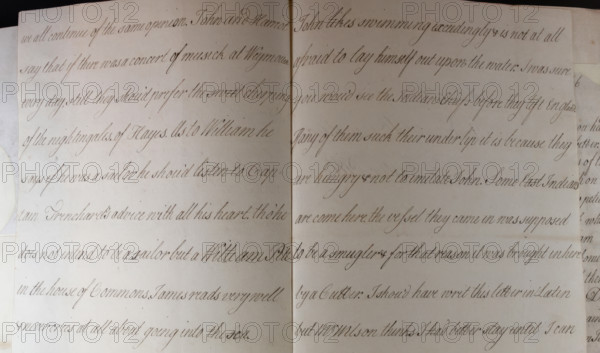 we all continue of the same opinion. John and Harriot
say that if there was a concert of musick at Weymouth
every day still they shou'd prefer the sweet chirping
of the nightingales of Hayes. As to William he
says if he was a sailor he shou'd listen to Cap
tain Trenchard's advice with all his heart, tho' he
does not intend to be a sailor but a William Pitt
in the house of Commons. James reads very well
at all about going into the sea.
John likes swimming exceedingly & is not at all
afraid to lay himself out upon the water. I was sure
you wou'd see the Indian chiefs before they left
Gang of them such their underlip it is because they
are hungry & not to imitate John. Some East Indians
are come here the vessel they came in was supposed
to be a smugler & for that reason it was brought in here
by a Cutter. I shou'd have wrot this letter in Latin
but Mr Wilson thinks I had better stay until I can